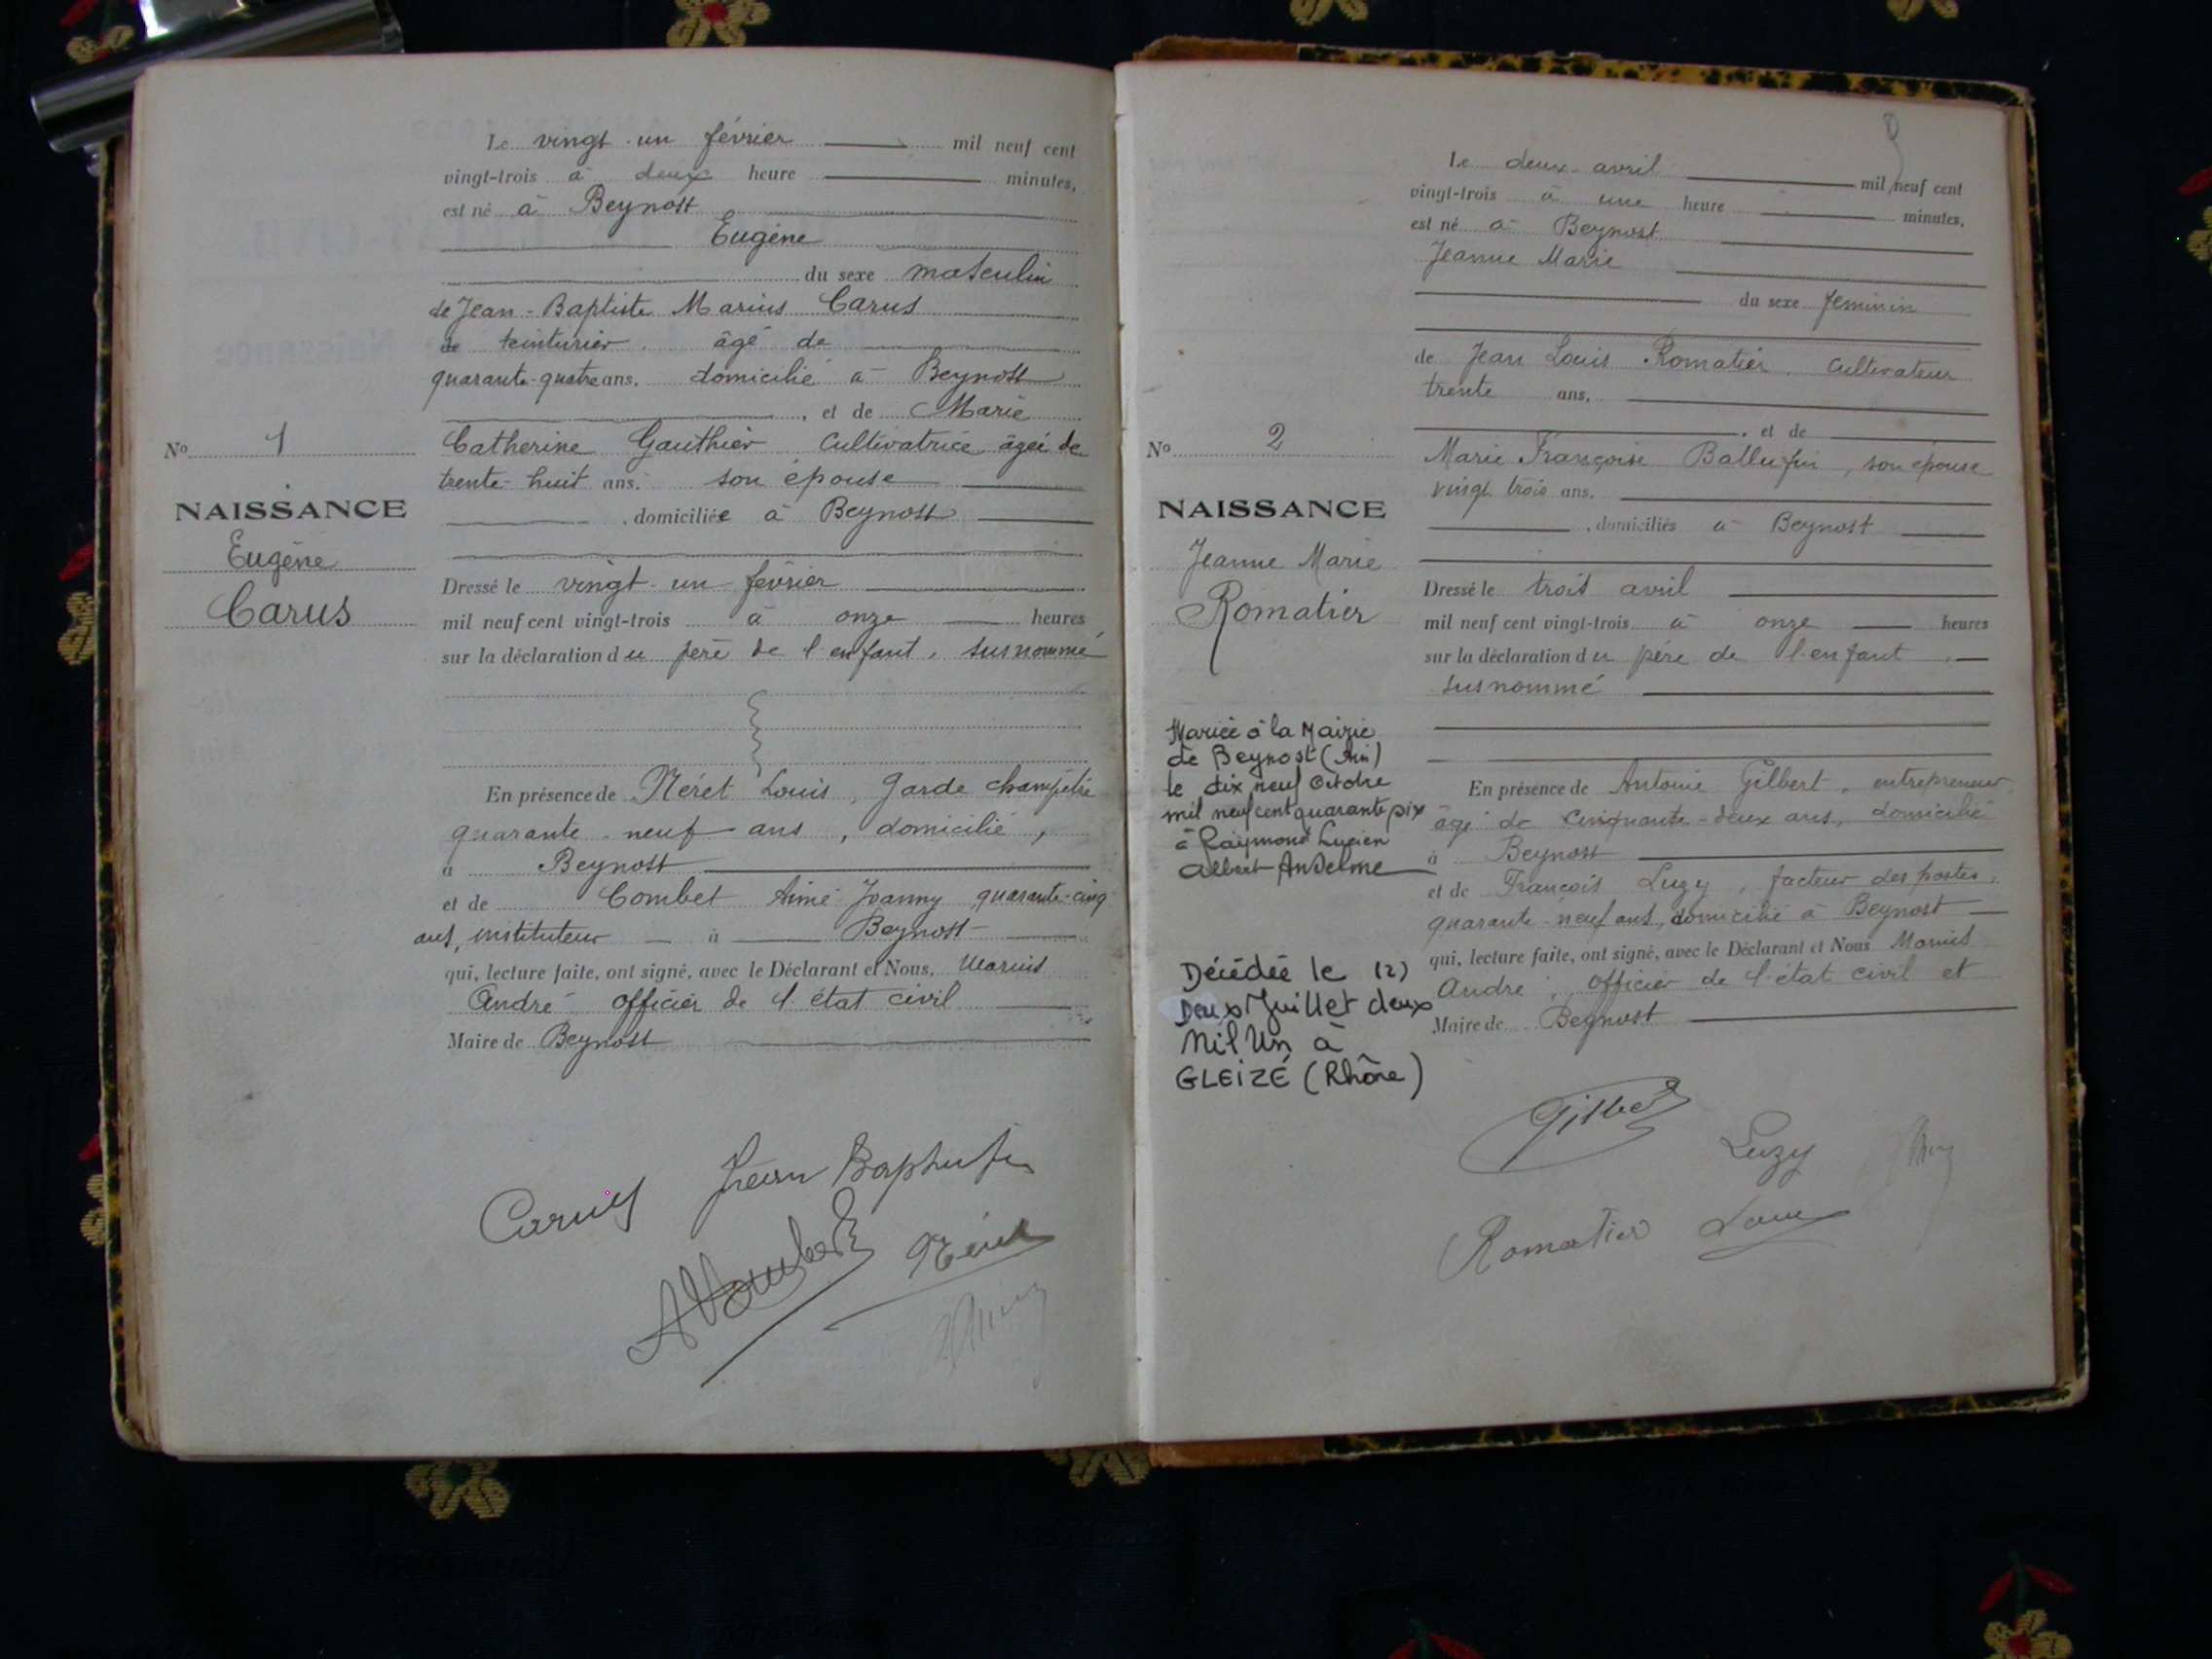 Le vingt-un février mil neuf cent
vingt-trois à deux heure minutes,
est né à Beynost
Eugène
du sexe masculin
de Jean-Baptiste Marius Carus
de teinturier, âgé de
quarante-quatre ans, domicilié à Beynost
, et de Marie
Catherine Gauthier, cultivatrice âgée de
trente-huit ans, son épouse
, domiciliée à Beynost
Dressé le vingt-un février
mil neuf cent vingt-trois à onze heures
sur la déclaration du père de l'enfant, susnommé
En présence de Néret Louis, garde champêtre
quarante-neuf ans, domicilié,
à Beynost
et de Combet Aimé Joanny quarante-cinq
ans, instituteur à Beynost
qui, lecture faite, ont signé, avec le Déclarant et Nous, Marius
André officier de l'état civil
Maire de Beynost
No 1
NAISSANCE
Eugène
Carus
Carus Jean Baptiste
ACombet Néret
Le deux avril mil neuf cent
vingt-trois à une heure minutes,
est né à Beynost
Jeanne Marie
du sexe féminin
de Jean Louis Romatier, cultivateur
trente ans,
, et de
Marie Françoise, son épouse
vingt trois ans,
, domiciliés à Beynost
Dressé le trois avril
mil neuf cent vingt-trois à onze heures
sur la déclaration du père de l'enfant,
susnommé
En présence de Antoine Gilbert, entrepreneur,
âgé de cinquante-deux ans, domicilié
à Beynost
et de François Luzy, facteur des postes,
quarante-neuf ans, domicilié à Beynost
qui, lecture faite, ont signé, avec le Déclarant et Nous Marius
André, officier de l'état civil et
Maire de Beynost
No 2
NAISSANCE
Jeanne Marie
Romatier
Mariée à la Mairie
de Beynost (Ain)
le dix neuf Octobre
mil neuf cent quarante six
à Raymond Lucien
Albert Anselme
Décédée le (2)
Deux Juillet deux
Mil Un à
GLEIZÉ (Rhône)
Gilbert
Luzy
Romatier Louis